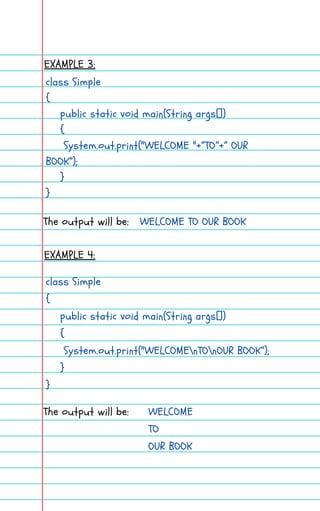 EXAMPLE 3:
class Simple
{
public static void main(String args[])
{
System.out.print("WELCOME "+"TO"+" OUR
BOOK");
}
}
The output will be: WELCOME TO OUR BOOK
EXAMPLE 4:
class Simple
{
public static void main(String args[])
{
System.out.print("WELCOME\nTO\nOUR BOOK");
}
}
The output will be: WELCOME
TO
OUR BOOK